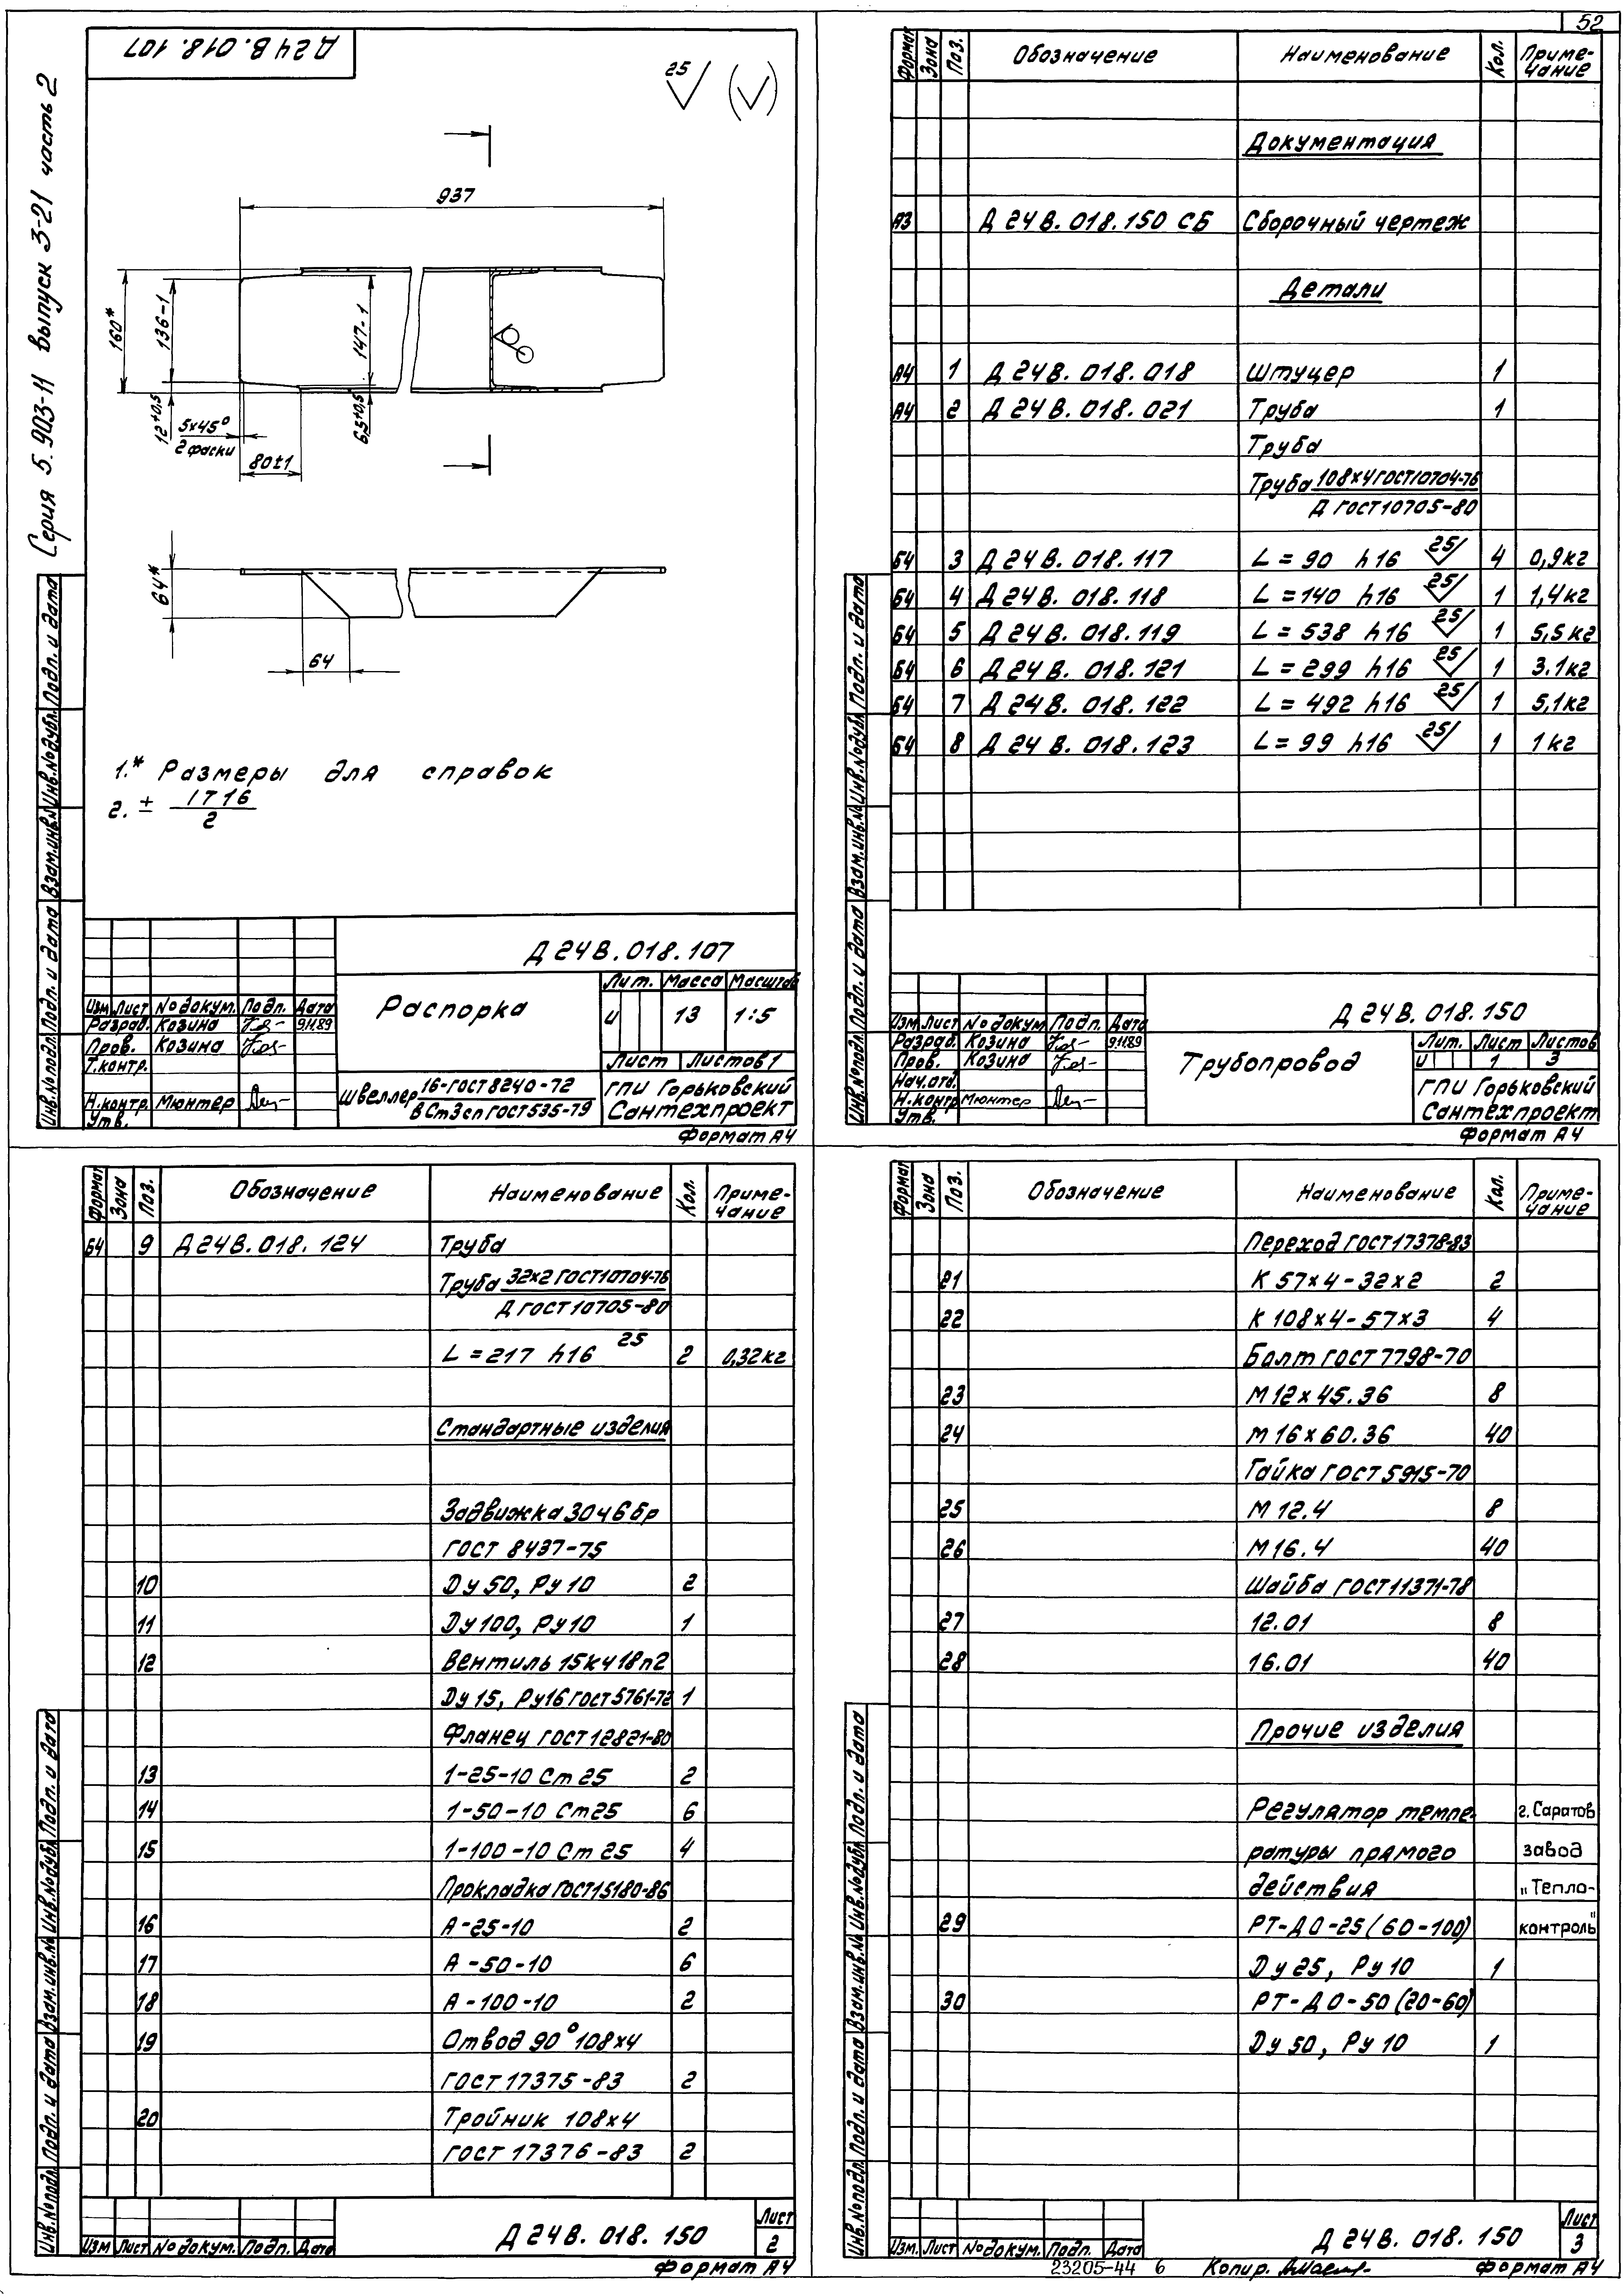 52
Серия 5.903-11 выпуск 3-21 часть 2
Д24В.018.107
25
937
160*
136-1
147-1
12+0,5
6,5+0,5
5х45°
2 фаски
80±1
64*
64
1.* Размеры для справок
2. ± IT16
2
Инв.№подл. Подп. и дата Взам.инв.№ Инв.№дубл. Подп. и дата
Д24В.018.107
Изм Лист №докум. Подп. Дата
Разраб. Козина 9.11.89
Пров. Козина
Т.контр.
Н.контр. Мюнтер
Утв.
Распорка
Лит. Масса Масштаб
и 13 1:5
Лист Листов 1
Швеллер 16-ГОСТ 8240-72
ВСт3сп ГОСТ 535-79
ГПИ Горьковский
Сантехпроект
Формат А4
Формат Зона Поз. Обозначение Наименование Кол. Приме-
чание
Документация
А3 Д24В.018.150 СБ Сборочный чертеж
Детали
А4 1 Д24В.018.018 Штуцер 1
А4 2 Д24В.018.021 Труба 1
Труба
Труба 108х4 ГОСТ10704-76
Д ГОСТ10705-80
Б4 3 Д24В.018.117 L=90 h16 25 4 0,9кг
Б4 4 Д24В.018.118 L=140 h16 25 1 1,4кг
Б4 5 Д24В.018.119 L=538 h16 25 1 5,5кг
Б4 6 Д24В.018.121 L=299 h16 25 1 3.1кг
Б4 7 Д24В.018.122 L=492 h16 25 1 5,1кг
Б4 8 Д24В.018.123 L=99 h16 25 1 1кг
Инв.№подл. Подп. и дата Взам.инв.№ Инв.№дубл. Подп. и дата
Д24В.018.150
Изм Лист №докум. Подп. Дата
Разраб. Козина 9.11.89
Пров. Козина
Нач.отд.
Н.контр Мюнтер
Утв.
Трубопровод
Лит. Лист Листов
и 1 3
ГПИ Горьковский
Сантехпроект
Формат А4
Формат Зона Поз. Обозначение Наименование Кол. Приме-
чание
Б4 9 Д24В.018.124 Труба
Труба 32х2 ГОСТ10704-76
Д ГОСТ10705-80
L=217 h16 25 2 0,32кг
Стандартные изделия
Задвижка 30ч6бр
ГОСТ 8437-75
10 Dу 50, Ру 10 2
11 Dу 100, Ру 10 1
12 Вентиль 15кч18п2
Dу 15, Ру16 ГОСТ 5761-72 1
Фланец ГОСТ 12821-80
13 1-25-10 Ст 25 2
14 1-50-10 Ст25 6
15 1-100-10 Ст 25 4
Прокладка ГОСТ15180-86
16 А-25-10 2
17 А-50-10 6
18 А-100-10 2
19 Отвод 90° 108х4
ГОСТ 17375-83 2
20 Тройник 108х4
ГОСТ 17376-83 2
Инв.№подл. Подп. и дата Взам.инв.№ Инв.№дубл. Подп. и дата
Изм Лист №докум. Подп. Дата
Д24В.018.150
Лист
2
Формат А4
Формат Зона Поз. Обозначение Наименование Кол. Приме-
чание
Переход ГОСТ17378-83
21 К 57х4-32х2 2
22 К 108х4-57х3 4
Болт ГОСТ 7798-70
23 М12х45.36 8
24 М16х60.36 40
Гайка ГОСТ 5915-70
25 М 12.4 8
26 М16.4 40
Шайба ГОСТ11371-78
27 12.01 8
28 16.01 40
Прочие изделия
Регулятор темпе- г. Саратов
ратуры прямого завод
действия "Тепло-
29 РТ-ДО-25 (60-100) контроль"
Dу 25, Ру 10 1
30 РТ-ДО-50 (20-60)
Dу 50, Ру 10 1
Инв.№подл. Подп. и дата Взам.инв.№ Инв.№дубл. Подп. и дата
Изм. Лист №докум. Подп. Дата
Д24В.018.150
Лист
3
23205-44 6 Копир. Формат А4